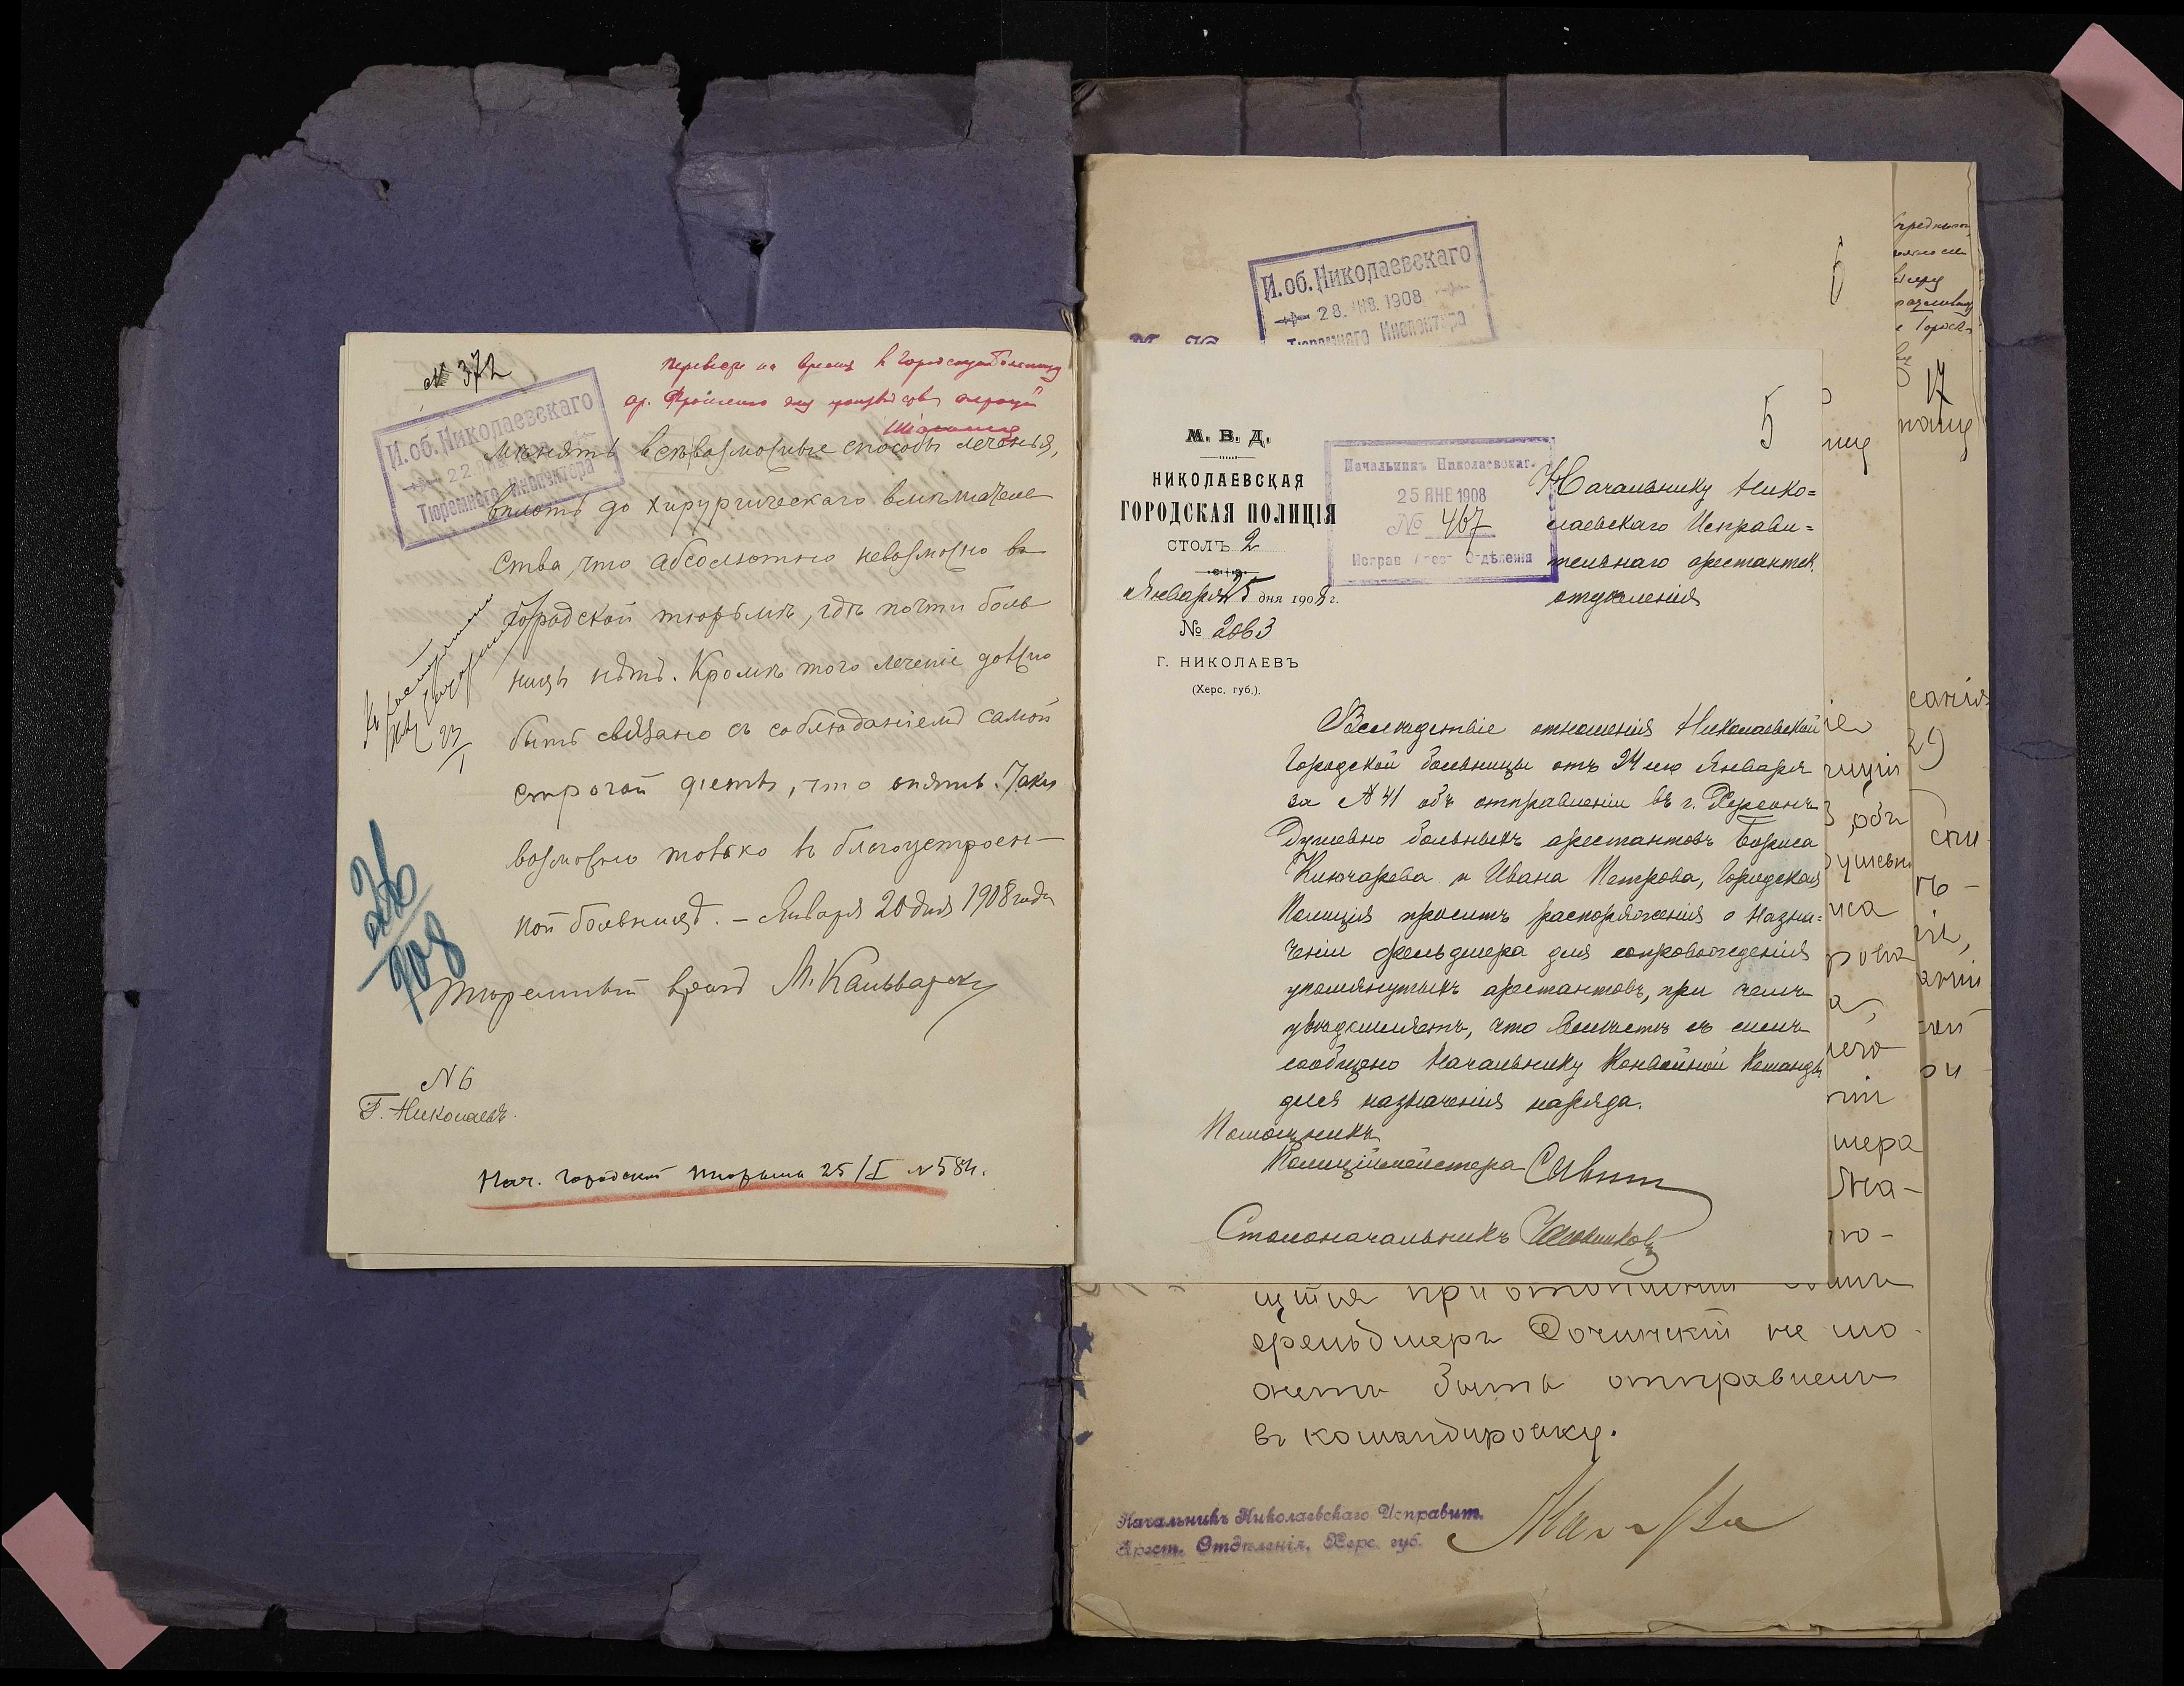 № 372
И. об. Николаевскаго
22
Тюремнаго Инспектора
Перевести на время в Городскую больницу
ар.
мѣнять всѣвозможные способы леченья,
вплоть до хирургическаго вмѣшатель
ства, что абсолютно невозможно въ
городской тюрьмѣ, гдѣ почти боль
ницы нѣтъ. Кромѣ того леченіе должно
быть связано съ соблюденіемъ самой
строгой діеты, что опять-таки
возможно только въ благоустроен-
ной больницѣ. – Января 20 дня 1908 года
Тюремный врачъ М. Кальварскій
23/I
236/908
N 6
Г. Николаевъ.
Нач. городской тюрьмы 25/I № 584.
И. об. Николаевскаго
28. ЯНВ. 1908
Тюремнаго Инспектора
6
17
5
М. В. Д.
НИКОЛАЕВСКАЯ
ГОРОДСКАЯ ПОЛИЦІЯ
СТОЛЪ 2
Января 25 дня 1908 г.
№ 2063
Г. НИКОЛАЕВЪ
(Херс. губ.).
Начальникъ Николаевскаг.
25 ЯНВ 1908
№ 467
Исправ Арест Отдѣленія
Начальнику Нико=
лаевскаго Исправи=
тельнаго арестантск.
отдѣленія
Вслѣдствіе отношенія Николаевской
Городской больницы отъ 24-го Января
за № 41 объ отправленіи въ г. Херсонъ
Душевно больныхъ арестантовъ Бориса
Ключарева и Ивана Петрова, Городская
Полиція проситъ распоряженія о назна=
ченіи фельдшера для сопровожденія
упомянутыхъ арестантовъ, при чемъ
увѣдомляетъ, что вмѣстѣ съ симъ
сообщено Начальнику Конвойной Команды
для назначенія наряда.
Помощникъ
Полиціймейстера
Столоначальникъ
фельдшеръ не мо-
жетъ быть отправленъ
въ командировку.
Начальникъ Николаевскаго Исправит.
Арест. Отдѣленія, Херс. губ.